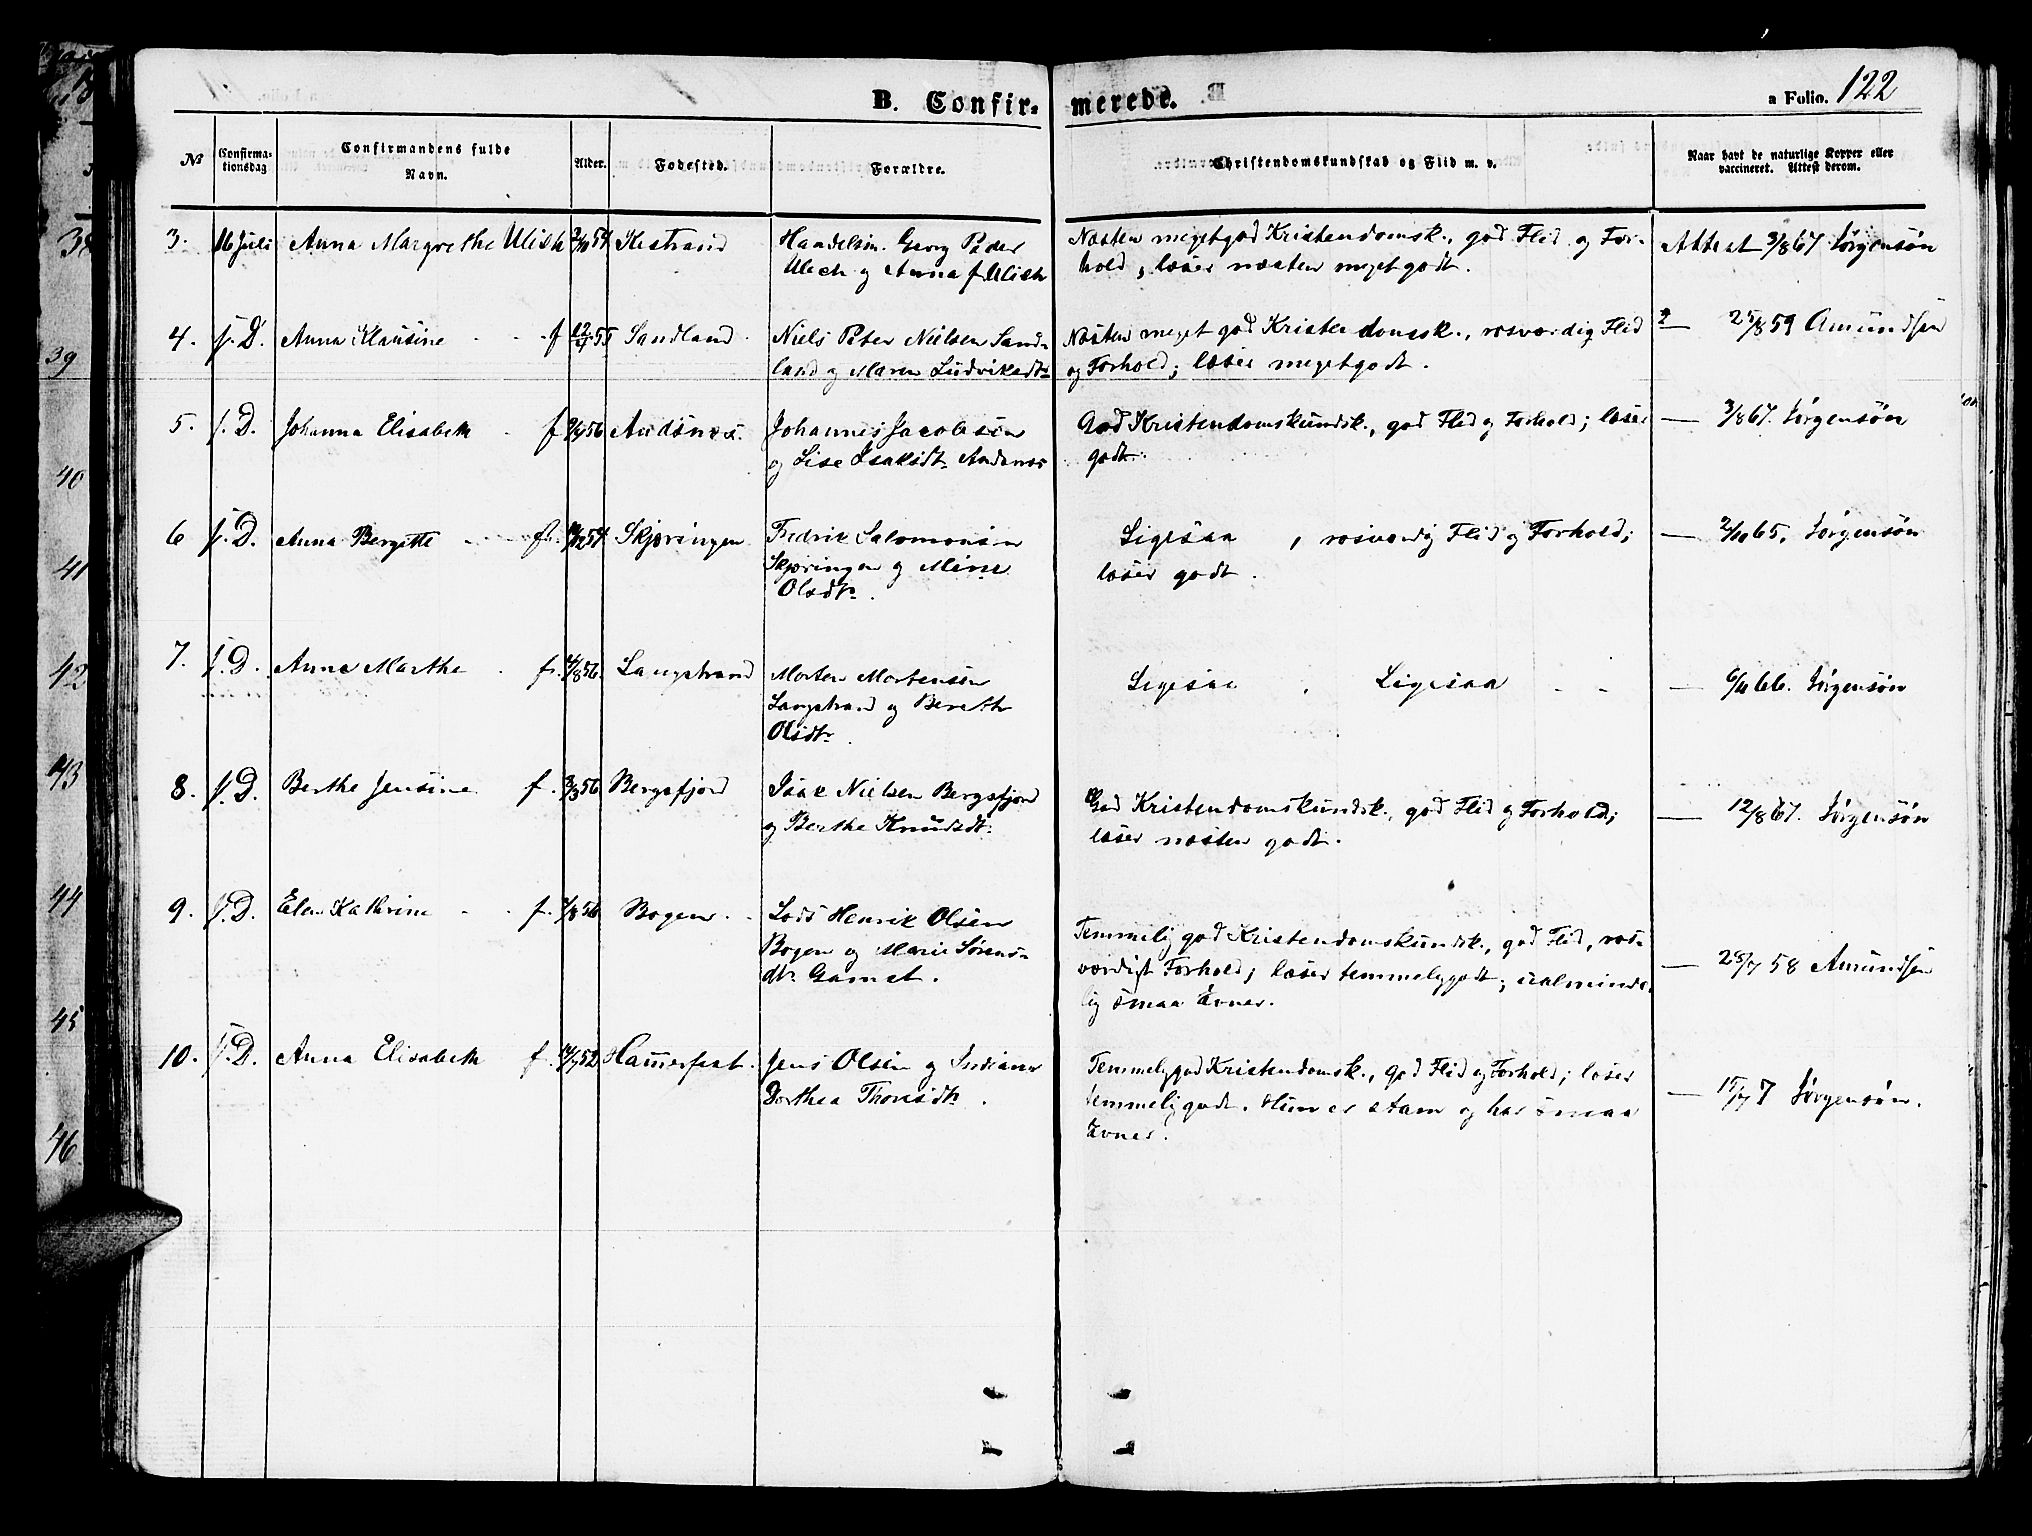 B. Confir- merede.
a Folio. 122
№
Confirma-
tionsdag
Confirmandens fulde
Navn.
Alder.
Fødested.
Forældre.
Christendomskundskab og Flid m. v.
Naar havt de naturlige Kopper eller
vaccineret. Attest derom.
3. 16 Juli Anna Margrethe Ulich 54 Kestrand
Handelsm. Georg Peder
Ulich og Anna f. Ulich
Næsten megetgod Kristendomsk., god Flid og For-
hold, læser næsten megetgodt.
Attest 3/8 67 Jørgensøn
4. s. D. Anna Klausine f 55 Sandland
Niels Peter Nielsen Sand-
land og Maren Ludviksdtr
Næsten meget god Kristendomssk., rosværdig Flid
og Forhold; læser megetgodt.
— 25/8 59 Amundsen
5. s. D. Johanna Elisabeth f 56 Andsnes.
Johannes Jacobsen
og Lise Isaksdtr Andsnes
God Kristendomskundsk., god Flid og Forhold; læser
godt.
— 3/8 67. Jørgensøn
6 s. D. Anna Bergitte f. 54 Skjøringen
Fredrik Salomonsen
Skjøringen og Mine
Olsdtr.
Ligesaa , rosværdig Flid og Forhold;
læser godt.
— 2/10 65. Jørgensøn
7. s. D. Anna Marthe f. 4/8 56. Langstrand
Morten Mortensen
Langstrand og Bereth
Olsdtr.
Ligesaa , Ligesaa
— 66. Jørgensøn
8. s. D. Berthe Jensine f. 56 Bergsfjord
Isak Nielsen Bergsfjord
og Berthe Knudsdtr
God Kristendomskundsk., god Flid og Forhold;
læser næsten godt.
— 12/8 67. Jørgensøn
9. s. D. Elen Kathrine f. 7/8 56 Bogen
Lods Henrik Olsen
Bogen og Marie Sørens-
dtr Gamst.
Temmelig god Kristendomskundsk., god Flid, ros-
værdigt Forhold; læser temmeliggodt; ualminde-
lig smaa Evner.
— 25/7 58 Amundsen
10. s. D. Anna Elisabeth f. 52 Hammerfest.
Jens Olsen og Indiane
Dorthea Thorisdtr.
Temmeliggod Kristendomsk., god Flid og Forhold; læser
temmeliggodt. Hun er stam og har smaa
Evner.
— Jørgensøn.
38
39
40
41
42
43
44
45
46